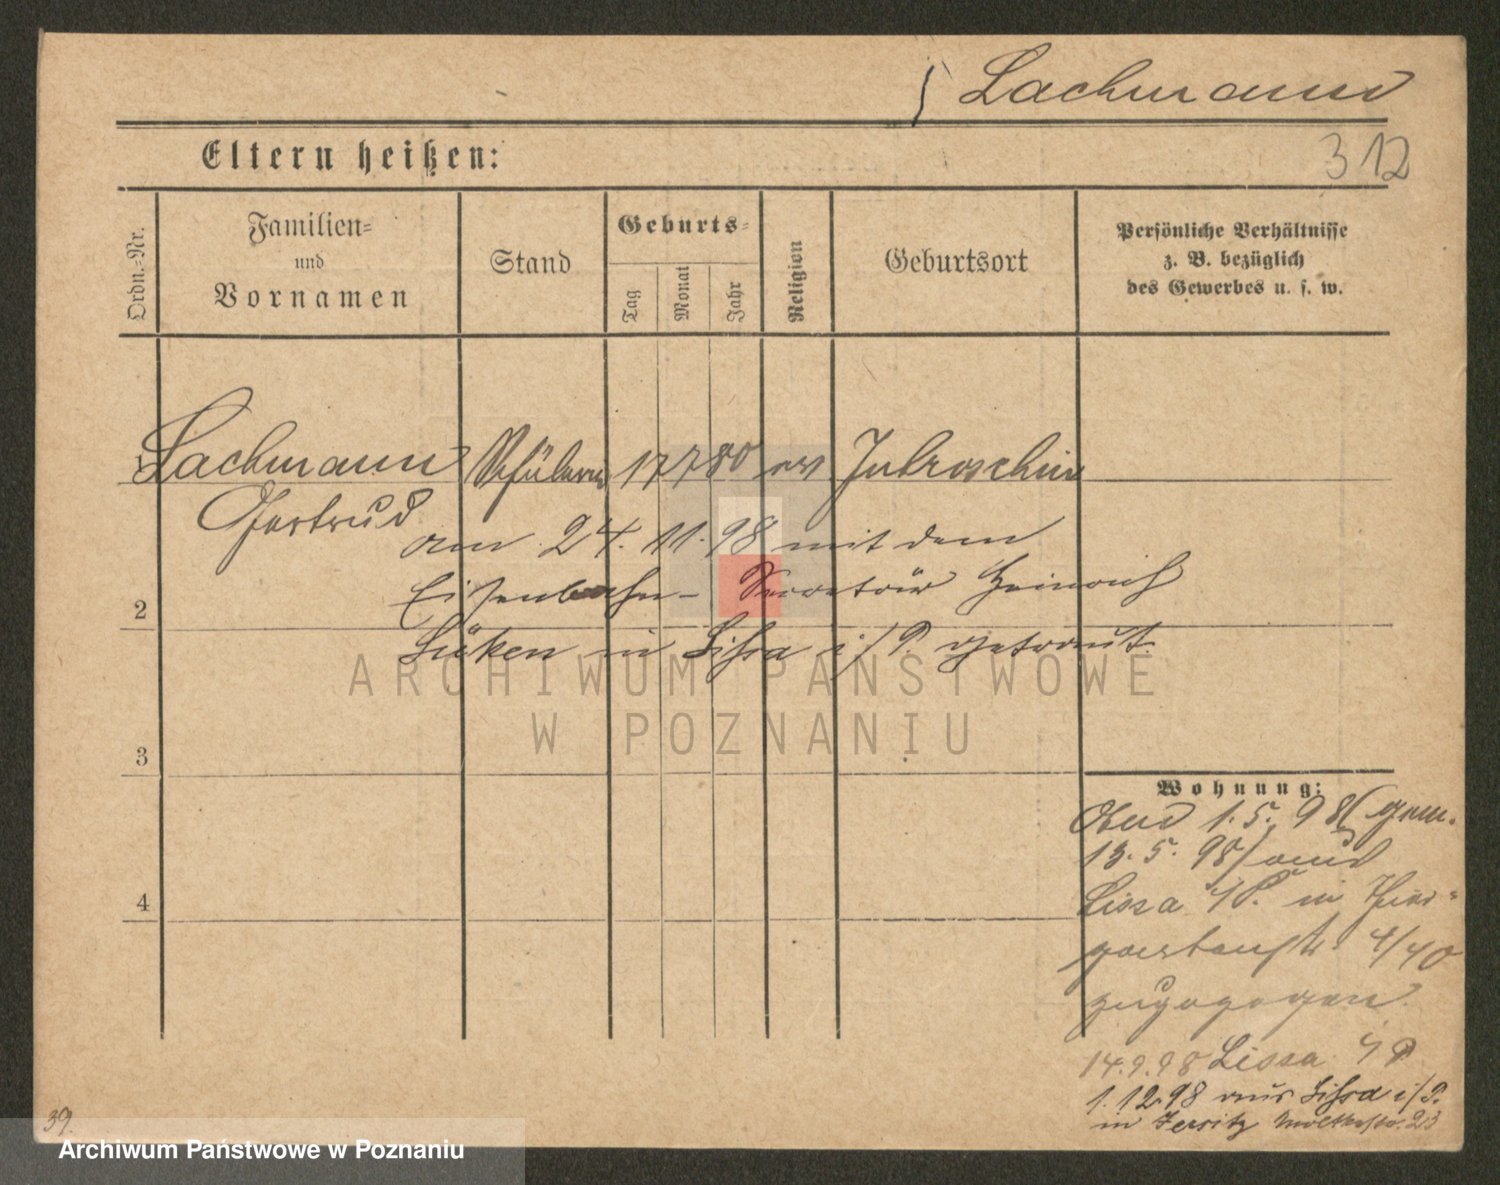 Lachmann
Eltern heißen:
312
Ordn.-Nr.
Familien-
und
Vornamen
Stand
Geburts-
Tag
Monat
Jahr
Religion
Geburtsort
Persönliche Verhältnisse
z. B. bezüglich
des Gewerbes u. s. w.
Lachmann 17 7 80 ev Jutroschin
Gertrud
am 24. 11. 98 mit dem
2
Eisenbahn- Secretär Heinrich
Lüken in Lissa i/P. getraut.
ARCHIWUM PAŃSTWOWE
W POZNANIU
3
Wohnung:
1. 5. 98 (gem.
13. 5. 98) aus
4
Lissa i/P. in
4/40
zugezogen.
14.9.98 Lissa i/P
1.12.98 aus Lissa i/P.
in Jersitz Moltkestr. 23
39.
Archiwum Państwowe w Poznaniu